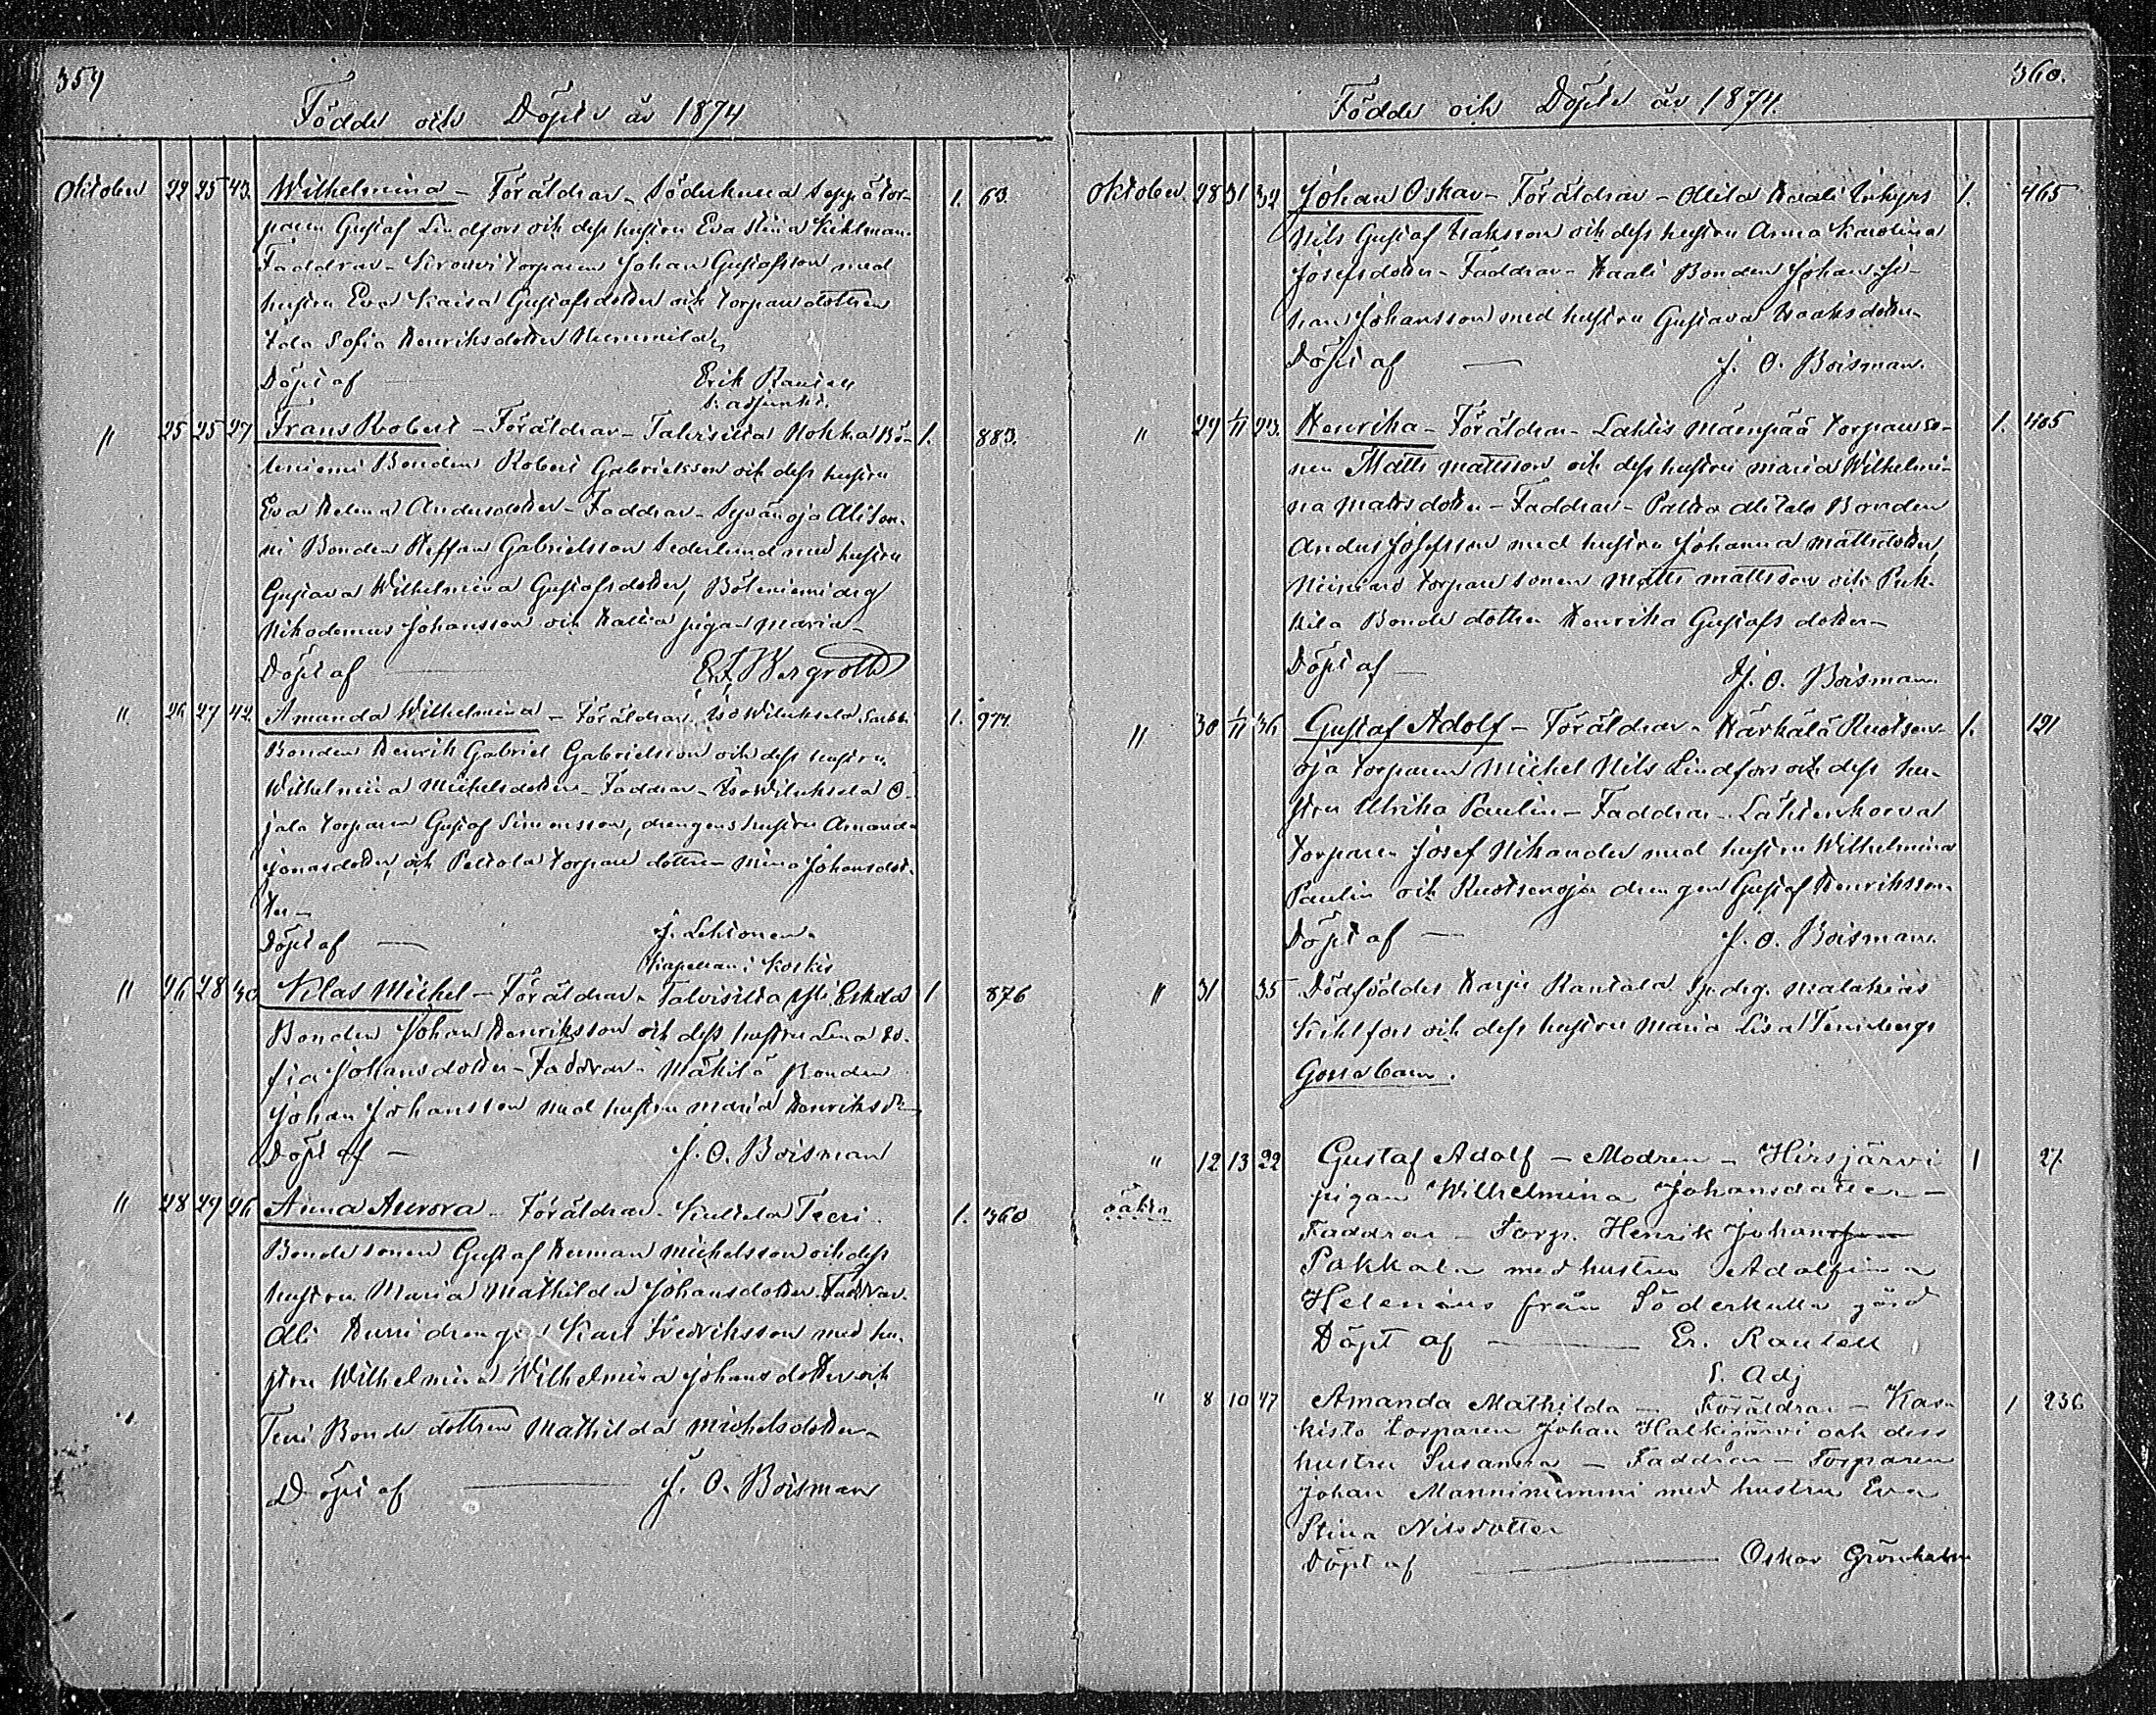 359
Födde och Döpte år 1874
Oktober 22 25 43. Wilhelmina – Föräldrar – Söderkulla Seppä tor- 1. 63.
paren Gustaf Lindfors och dess hustru Eva Stina Kihlman.
Faddrar – torparen Johan Gustafsson med
hustru Eva Kaisa Gustafsdotter och torpare dottren
Ida Sofia Henriksdotter Nummila,
Döpt af — Erik Rautell
v. adjunkt.
" 25 25 27 Frans Robert – Föräldrar – Talvisilta Nokka Bö- 1. 883.
leniemi Bonden Robert Gabrielsson och dess hustru
Eva Helena Andersdotter – Faddrar – Syvänoja
Bonden Steffan Gabrielsson Sederlund med hustru
Gustava Wilhelmina Gustafsdotter, Böleniemi drg
Nikodemus Johansson och Kallia pigan Maria –
Döpt af — Bergroth
" 26 27 42. Amanda Wilhelmina – Föräldrar, Iso Wiluksela 1. 974.
Bonden Henrik Gabriel Gabrielsson och dess hustru
Wilhelmina Michelsdotter – Faddrar – Iso Wiluksela O-
jala torparen Gustaf Simonsson, drengens hustru Amanda
Jonasdotter, och Peltola torpare dottren Mina Johansdot-
ter –
Döpt af — J. Lehtonen.
Kapellan i Koskis
" 26 28 30 Klas Michel – Föräldrar – Talvisilta Eskola 1 876
Bonden Johan Henriksson och dess hustru Lena So-
fia Johansdotter – Faddrar – Mäkilä Bonden
Johan Johansson med hustru Maria Henriksdr
Döpt af — J. O. Boisman
" 28 29 26 Anna Aurora – Föräldrar – Teeri 1. 360
Bonde sonen Gustaf Herman Michelsson och dess
hustru Maria Mathilda Johansdotter. Faddrar.
Ali drengen Karl Fredriksson med hu-
stru Wilhelmina Wilhelmina Johansdotter och
Teeri Bonde dottren Mathilda Michelsdotter –
Döpt af — J. O. Boisman
360.
Födde och Döpte år 1874.
Oktober. 28 31 32 Johan Oskar – Föräldrar – Ollila Kaali 1. 465
Nils Gustaf Isaksson och dess hustru Anna Karolina
Josefsdotter – Faddrar – Kaali Bonden Johan Jo-
han Johansson med hustru Gustava Isaksdotter
Döpt af — J. O. Boisman.
" 29 1/11 23. Henrika – Föräldrar – Lahtis Mäenpää torpareso- 1. 405
nen Matts Mattsson och dess hustru Maria Wilhelmi-
na Mattsdotter – Faddrar – Bonden
Anders Josefsson med hustru Johanna Mattsdotter,
torpare sonen Matts Mattsson och
Bonde dottren Henrika Gustafs dotter –
Döpt af — J. O. Boisman.
" 30 1/11 36 Gustaf Adolf – Föräldrar – Härkälä Ruotsen- 1. 121
oja torparen Michel Nils Lindfors och dess hu-
stru Ulrika Paulin – Faddrar – Lähteenkorva
torparen Josef Nikander med hustru Wilhelmina
Paulin och Ruotsenoja drengen Gustaf Henriksson.
Döpt af — J. O. Boisman.
" 31 35 Dödföddes Harju Rantala drg. Malakias
och dess hustru Maria Lisa
Gossebarn.
" 12 13 22 Gustaf Adolf – Modren – Hirsjärvi 1 27.
oäkta pigan Wilhelmina Johansdotter –
Faddrar – Torp. Henrik Johansson
Pakkala med hustru Adolfina
Helenius från Söderkulla gård
Döpt af — Er. Rautell
v. Adj
" 8 10 47 Amanda Mathilda – Föräldrar – Kas- 1 236
kisto torparen Johan Halkijärvi och dess
hustru Susanna – Faddrar – Torparen
Johan Manninummi med hustru Eva
Stina Nilsdotter
Döpt af — Oskar Grönholm